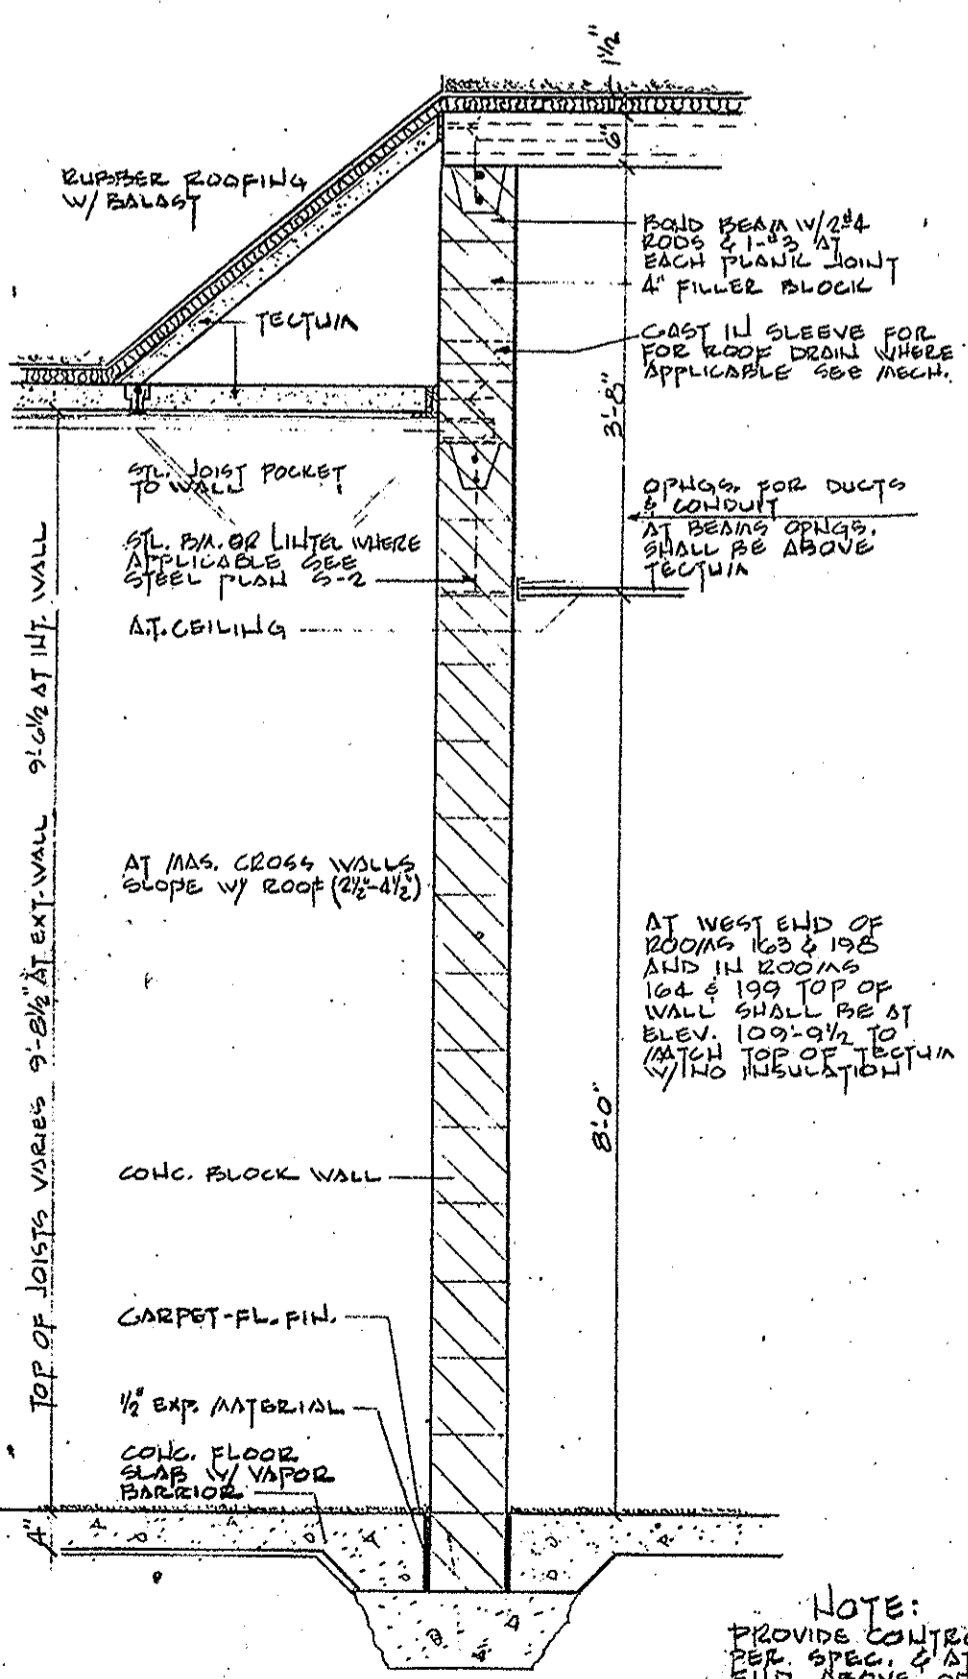 1½"
6"
RUBBER ROOFING
W/ BALAST
BOND BEAM W/2#4
RODS & 1-#3 AT
EACH PLANK JOINT
4" FILLER BLOCK
TECTUM
CAST IN SLEEVE FOR
FOR ROOF DRAIN WHERE
APPLICABLE SEE MECH.
3'-8"
STL. JOIST POCKET
TO WALL
OPNGS. FOR DUCTS
& CONDUIT
AT BEAMS OPNGS.
SHALL BE ABOVE
TECTUM
STL. BM. OR LINTEL WHERE
APPLICABLE SEE
STEEL PLAN S-2
A.T. CEILING
TOP OF JOISTS VARIES 9'-8½" AT EXT. WALL 9'-6½ AT INT. WALL
AT MAS. CROSS WALLS
SLOPE W/ ROOF (2½"-4½")
AT WEST END OF
ROOMS 163 & 198
AND IN ROOMS
164 & 199 TOP OF
WALL SHALL BE AT
ELEV. 109'-9½ TO
MATCH TOP OF TECTUM
W/ NO INSULATION
8'-0"
CONC. BLOCK WALL
CARPET-FL. FIN.
½" EXP. MATERIAL
CONC. FLOOR
SLAB W/ VAPOR
BARRIOR
4"
NOTE:
PROVIDE CONTRO
PER. SPEC. & AT